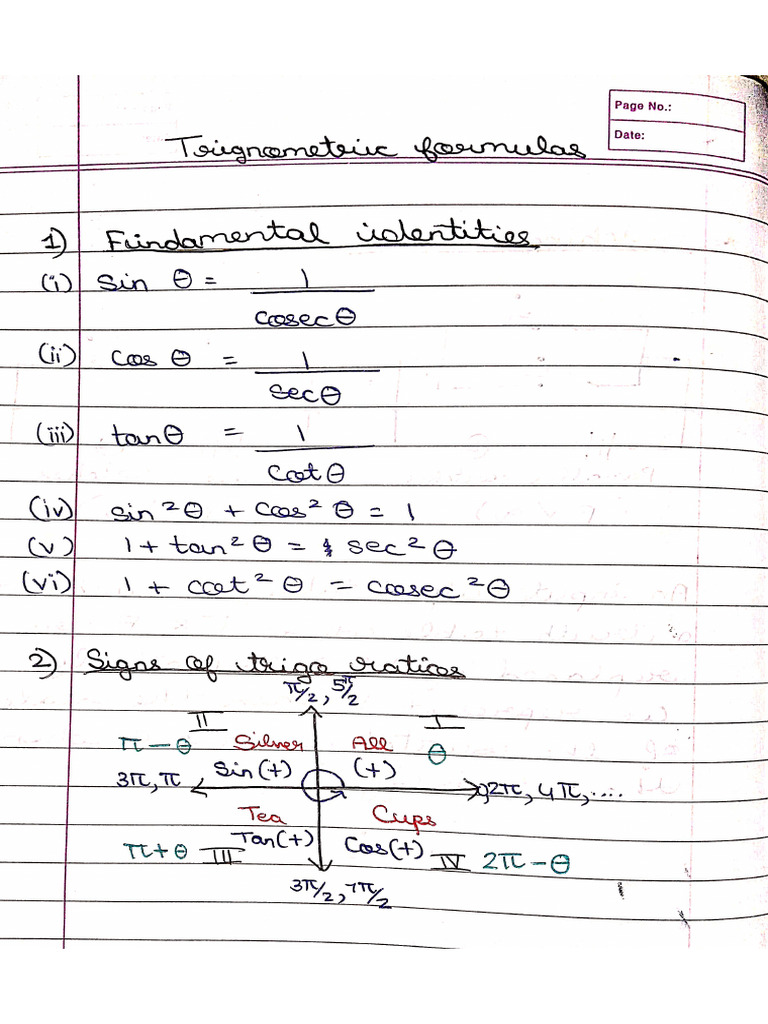 Page No.:
Date:
Trignometric formulas
1) Fundamental identities
(i) sin θ = 1
cosec θ
(ii) cos θ = 1
sec θ
(iii) tan θ = 1
cot θ
(iv) sin²θ + cos²θ = 1
(v) 1 + tan²θ = sec²θ
(vi) 1 + cot²θ = cosec²θ
2) Signs of trigo ratios
π/2, 5π/2
II I
π-θ Silver All θ
Sin(+) (+)
3π, π 0,2π, 4π,....
Tea Cups
Tan(+) Cos(+)
π+θ III IV 2π-θ
3π/2, 7π/2